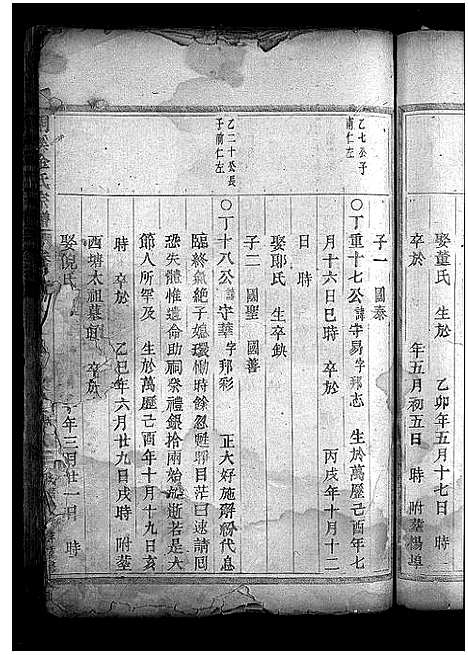 娶董氏 生於 乙卯年五月十七日 時
卒於 年五月初五日 時 附葬楊埠
子一 國泰
乙七公子
甫仁左
〇丁重十七公諱守易字邦志 生於萬歷己酉年七
月十六日巳時 卒於 丙戌年十月十二
日 時
娶鄢氏 生卒缺
子二 國聖 國善
乙二十公長
子甫仁左
〇丁十八公諱守華字邦彩 正大好施辭粉代息
臨終氣絕子媳環慟時餘忽甦聊目茫曰速請囘
恐失體惟遺命助祠祭禮銀拾兩始瀡逝若是大
節人所罕及 生於萬歷己酉年十月十九日亥
時 卒於 乙巳年六月廿九日戌時 附葬
西塘太祖墓
娶倪氏 卒於 年三月廿一 時
氏宗譜